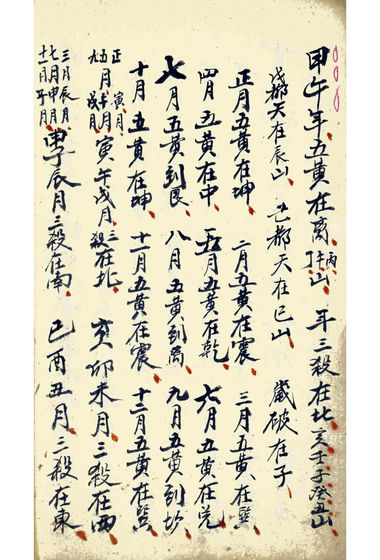 甲午年五黄在離丙午丁山 年三殺在北亥壬子癸丑山
戊都天在辰山 己都天在巳山 歲破在子
正月五黄在坤 二月五黄在震 三月五黄在巽
四月五黄在中 五月五黄在乾 六月五黄在兌
七月五黄到艮 八月五黄到离 九月五黄到坎
十月五黄在坤 十一月五黄在震 十二月五黄在巽
正寅月 五月午月 九月戌月 寅午戌月三殺在北 亥卯未月三殺在西
三月辰月 七月申月 十一月子月 申子辰月三殺在南 巳酉丑月三殺在東